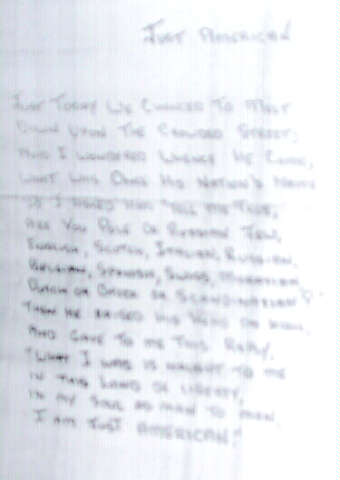 Just American
Just Today We Chanced To Meet
Down Upon The Crowded Street;
And I Wondered Whence He Came,
What Was Once His Nation's Name
So I Asked Him "Tell Me True,
Are You Pole Or Russian Jew,
English, Scotch, Italian, Russian,
Belgian, Spanish, Swiss, Moravian
Dutch Or Greek Or Scandinavian?"
Then He Raised His Head On High,
And Gave To Me This Reply,
"What I Was Is Naught To Me
In This Land Of Liberty,
In My Soul As Man To Man
I Am Just American!"